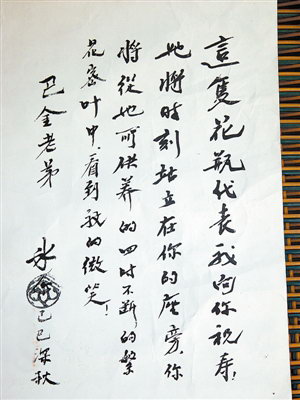 這隻花瓶代表我向你祝寿！
她將時刻站立在你的座旁，你
將從她所供养的四时不断的繁
花密叶中，看到我的微笑！
巴金老弟
冰心 己巳深秋